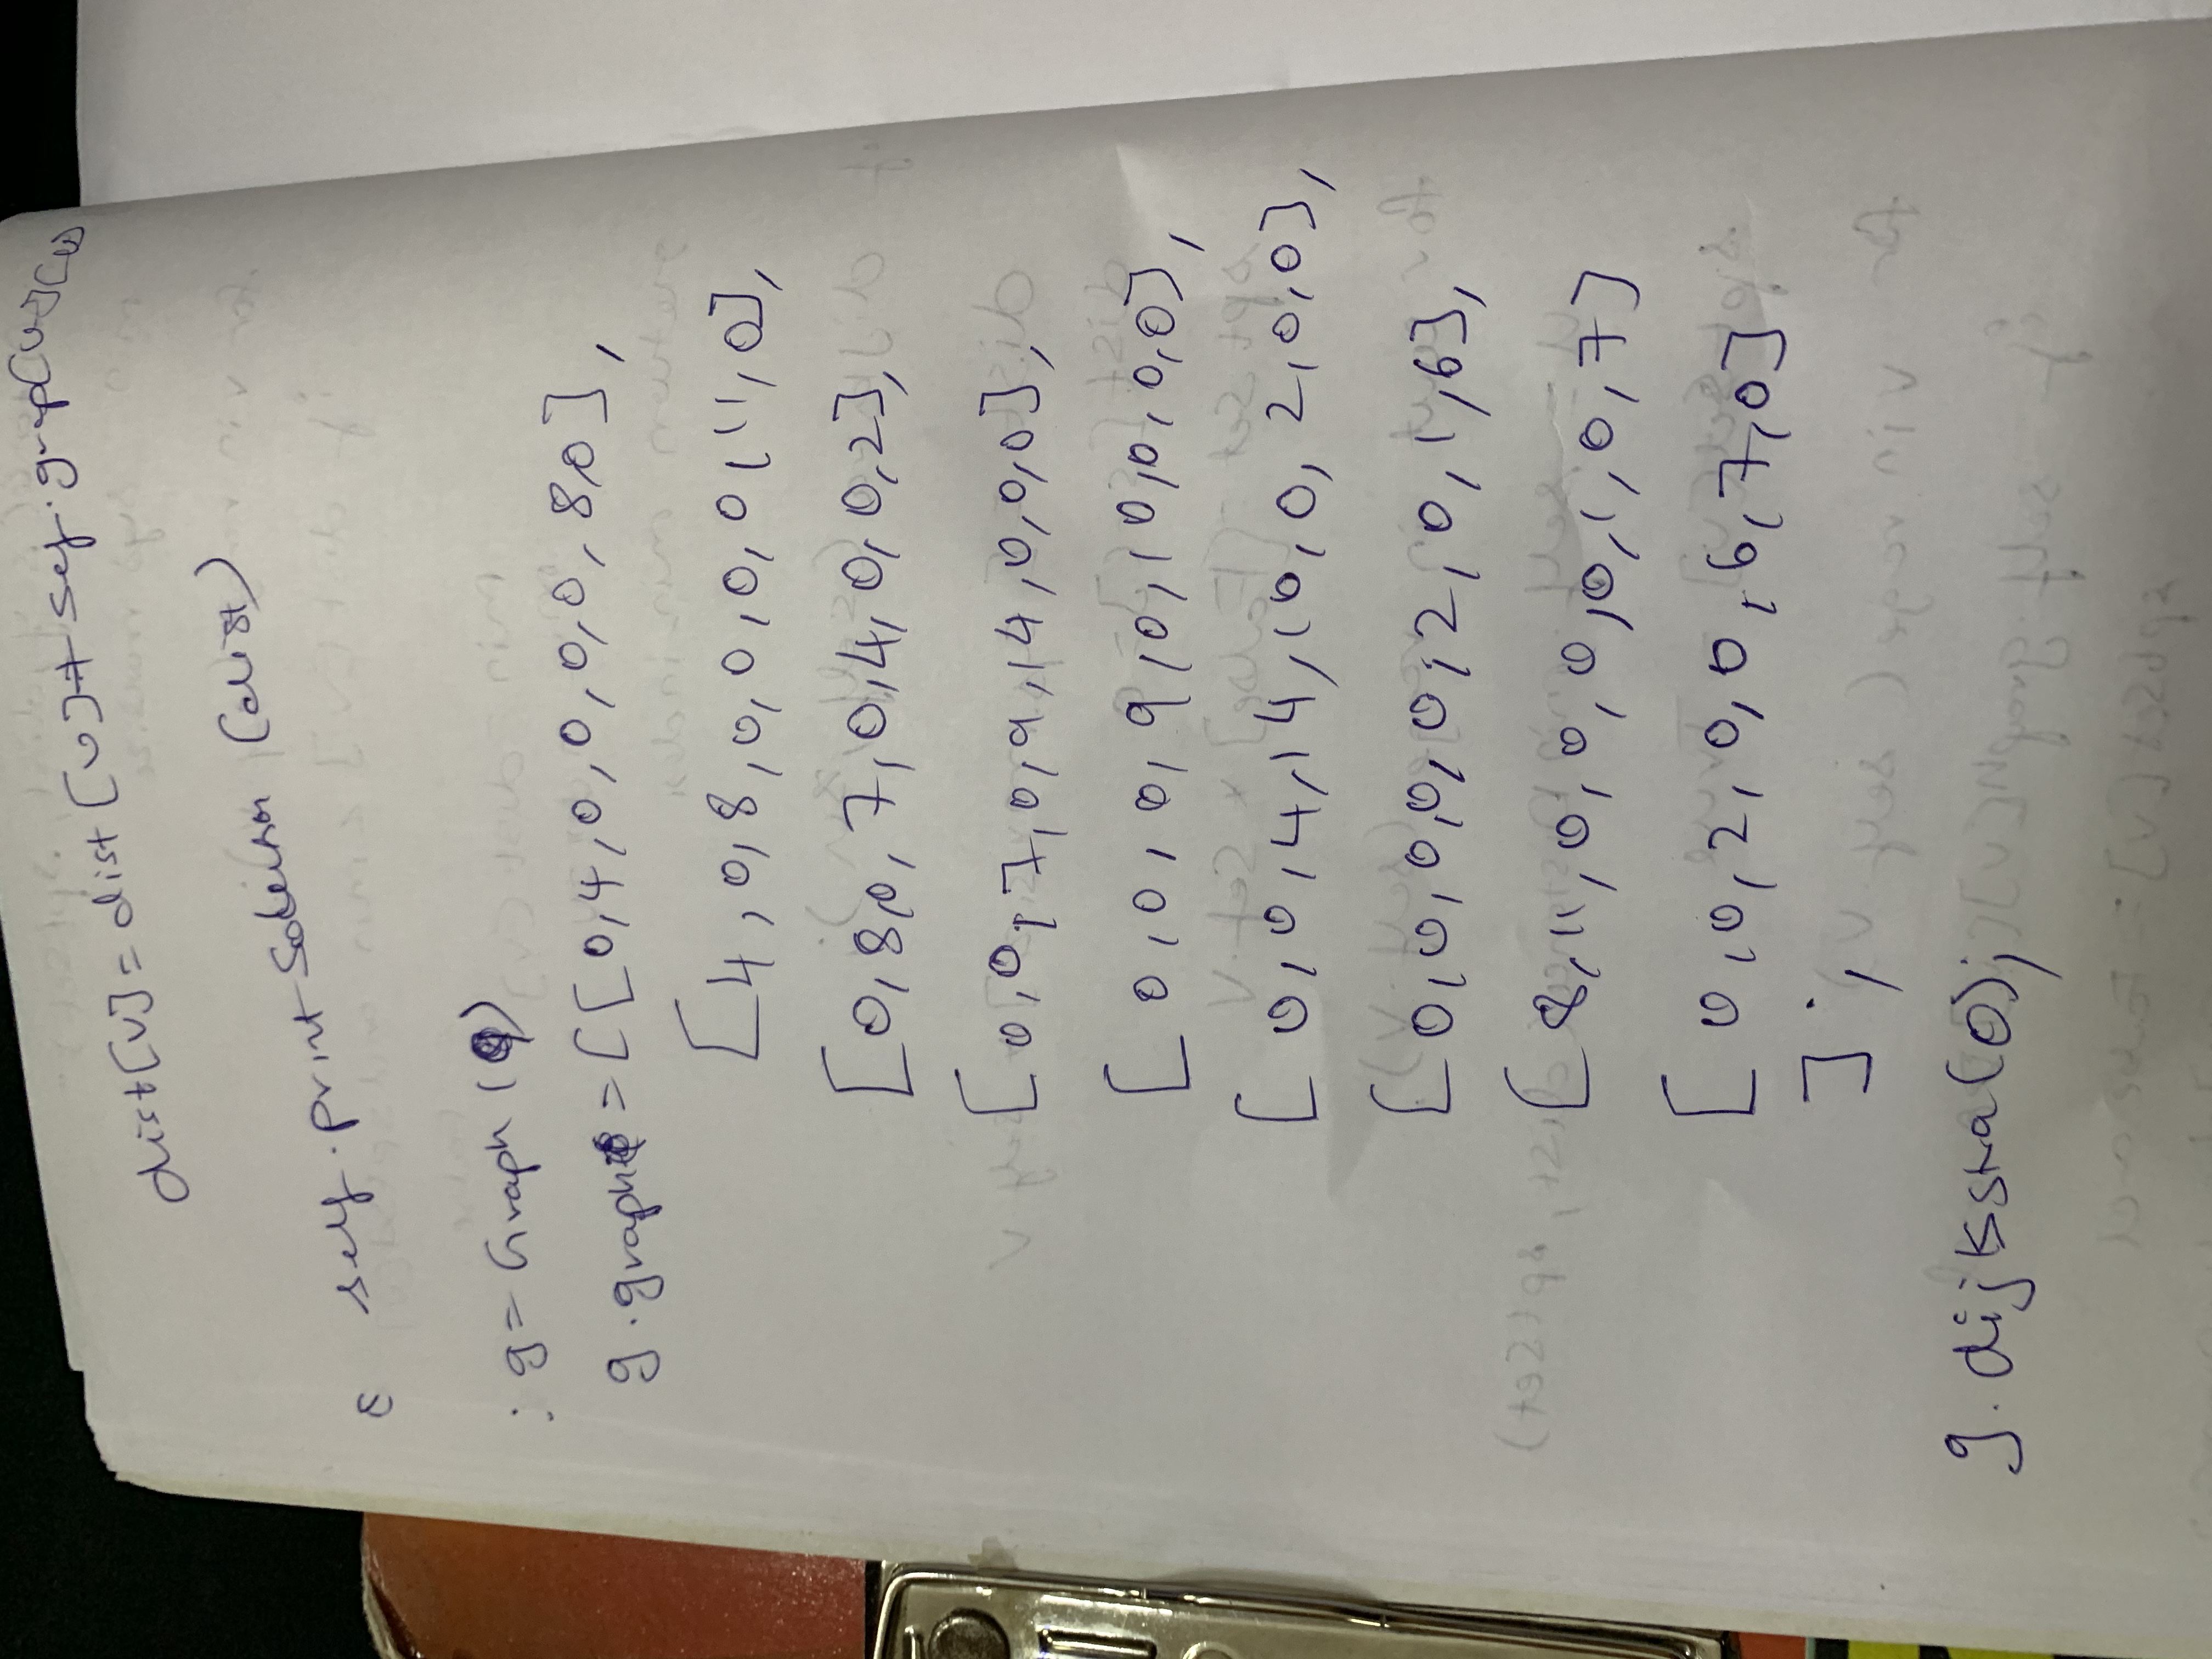 dist[v] = dist[u] + self.grap[u][v]
self.printSolution (dist)
: g = Graph (9)
g.graph = [[0,4,0,0,0,0,8,0],
[4,0,8,0,0,0,0,11,0],
[0,8,0,7,0,4,0,0,2],
[0,0,7,0,9,14,0,0,0],
[0,0,0,9,0,10,0,0,0],
[0,0,4,14,10,0,2,0,0],
[0,0,0,0,0,2,0,1,6],
[8,11,0,0,0,0,1,0,7]
[0,0,2,0,0,6,7,0]
];
g.dijkstra(0);